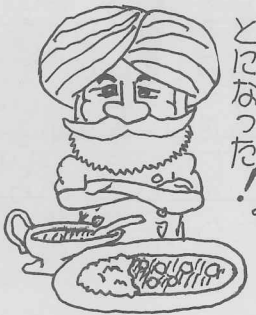 とになった!。